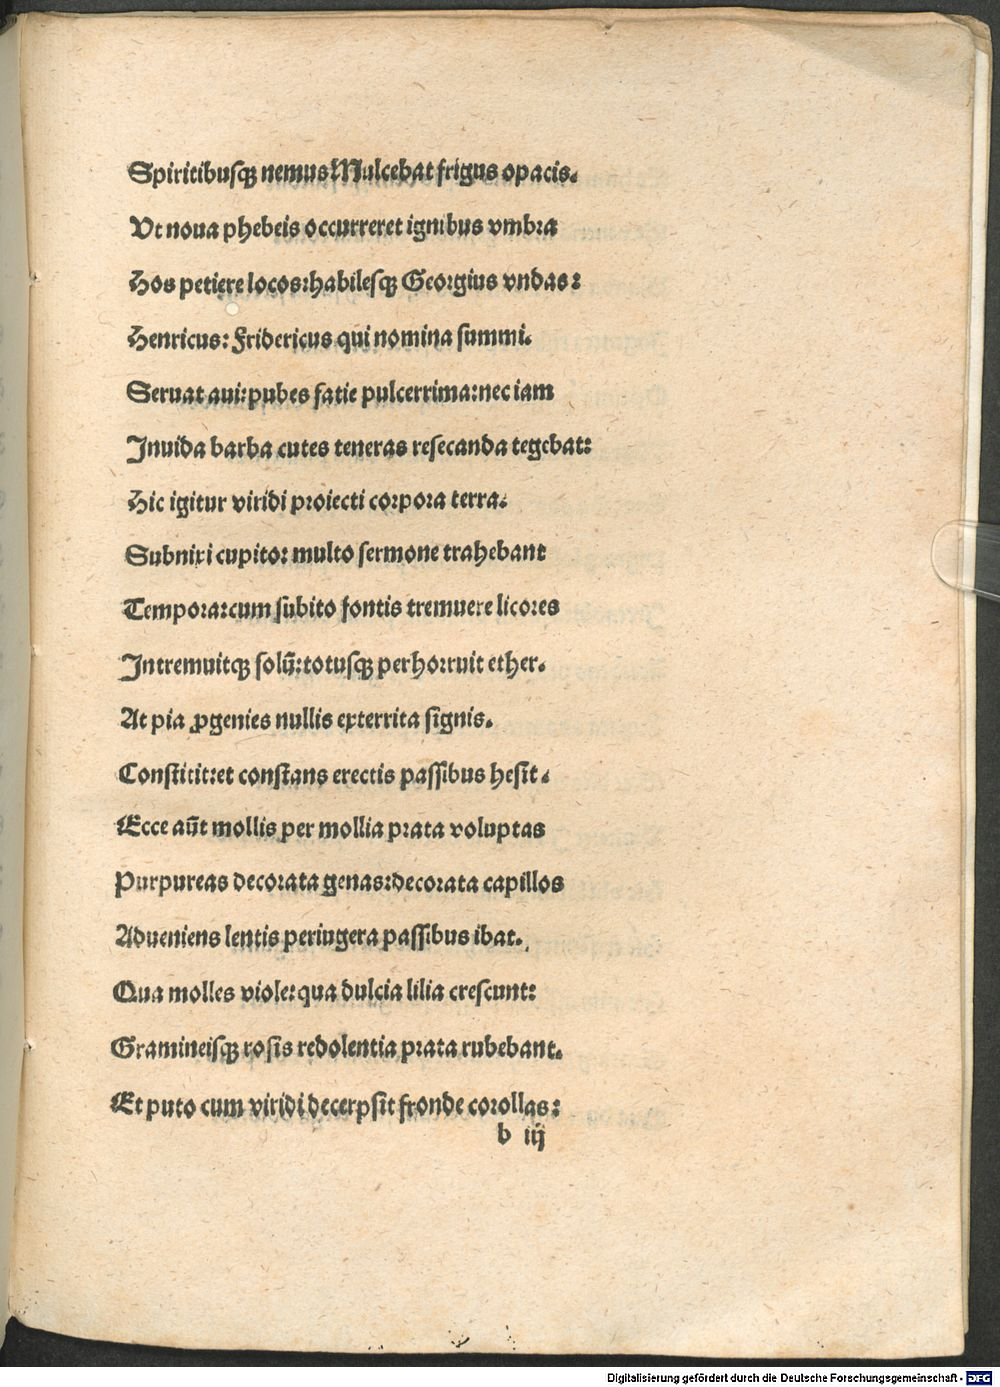 Spiritibusqꝫ nemus Mulcebat frigus opacis.
Vt noua phebeis occurreret ignibus vmbra
Hos petiere locos: habilesqꝫ Georgius vndas:
Henricus: Fridericus qui nomina summi.
Seruat aui: pubes fatie pulcerrima: nec iam
Inuida barba cutes teneras resecanda tegebat:
Hic igitur viridi proiecti corpora terra.
Subnixi cupito: multo sermone trahebant
Tempora: cum subito fontis tremuere licores
Intremuitqꝫ solū: totusqꝫ perhorruit ether.
At pia ꝓgenies nullis exterrita signis.
Constitit: et constans erectis passibus hesit.
Ecce aūt mollis per mollia prata voluptas
Purpureas decorata genas: decorata capillos
Adueniens lentis periugera passibus ibat.
Qua molles viole: qua dulcia lilia crescunt:
Gramineisqꝫ rosis redolentia prata rubebant.
Et puto cum viridi decerpsit fronde corollas:
b iij
Digitalisierung gefördert durch die Deutsche Forschungsgemeinschaft - DFG